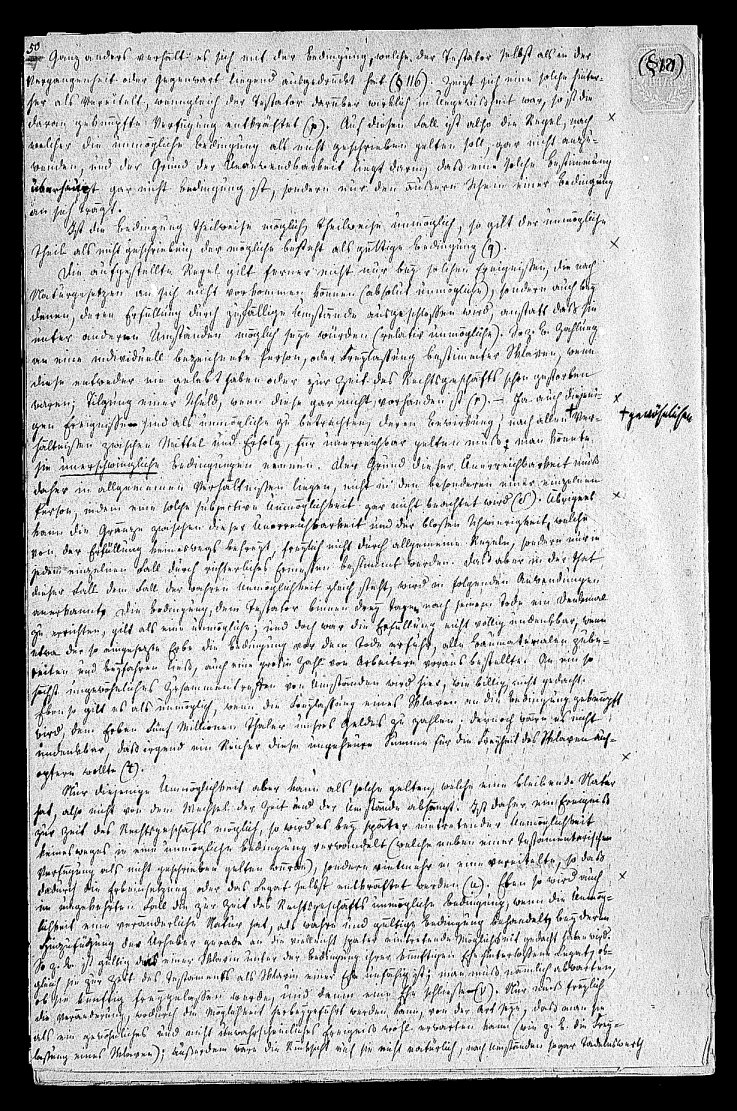 50
(§ 121)
Ganz anders verhält es sich mit der Bedingung, welche der Testator selbst als in der
Vergangenheit oder Gegenwart liegend ausgedrückt hat (§ 116). Zeigt sich eine solche hinter-
her als vereitelt, wenngleich der Testator darüber wirklich in Ungewißheit war, so ist die
daran geknüpfte Verfügung entkräftet (p). Auf diesen Fall ist also die Regel, nach
welcher die unmögliche Bedingung als nicht geschrieben gelten soll, gar nicht anzu-
wenden, und der Grund der Unanwendbarkeit liegt darin, daß eine solche Bestimmung
überhaupt gar nicht Bedingung ist, sondern nur den äußern Schein einer Bedingung
an sich trägt.
Ist die Bedingung theilweise möglich, theilweise unmöglich, so gilt der unmögliche
Theil als nicht geschrieben, der mögliche besteht als gültige Bedingung (q).
Die aufgestellte Regel gilt ferner nicht nur bey solchen Ereignissen, die nach
Naturgesetzen an sich nicht vorkommen können (absolut unmögliche), sondern auch bey
denen, deren Erfüllung durch zufällige Umstände ausgeschlossen wird, anstatt daß sie
unter anderen Umständen möglich seyn würden (relativ unmögliche). So z. B. Zahlung
an eine individuell bezeichnete Person, oder Freylassung bestimmter Sklaven, wenn
diese entweder nie gelebt haben oder zur Zeit des Rechtsgeschäfts schon gestorben
waren; Tilgung einer Schuld, wenn diese gar nicht vorhanden ist (r). — Ja auch diejeni-
gen Ereignisse sind als unmögliche zu betrachten, deren Bewirkung, nach allen + Ver-
+ gewöhnlichen
hältnissen zwischen Mittel und Erfolg, für unerreichbar gelten muß; man könnte
sie unerschwingliche Bedingungen nennen. Der Grund dieser Unerreichbarkeit muß
daher in allgemeinen Verhältnissen liegen, nicht in den besonderen einer einzelnen
Person, indem eine solche subjective Unmöglichkeit gar nicht beachtet wird (s). Übrigens
kann die Gränze zwischen dieser Unerreichbarkeit und der bloßen Schwierigkeit, welche
von der Erfüllung keineswegs befreyt, freylich nicht durch allgemeine Regeln, sondern nur in
jedem einzelnen Fall durch richterliches Ermessen bestimmt werden. Daß aber in der That
dieser Fall dem Fall der wahren Unmöglichkeit gleich steht, wird in folgenden Anwendungen
anerkannt. Die Bedingung, dem Testator binnen drey Tagen nach seinem Tode ein Denkmal
zu errichten, gilt als eine unmögliche; und doch war die Erfüllung nicht völlig undenkbar, wenn
etwa der so eingesetzte Erbe die Bedingung vor dem Tode erfuhr, alle Baumaterialien zube-
reiten und beyfahren ließ, auch eine große Zahl von Arbeitern voraus bestellte. An ein so
höchst ungewöhnliches Zusammentreffen von Umständen wird hier, wie billig, nicht gedacht.
Eben so gilt es als unmöglich, wenn die Freylassung eines Sklaven an die Bedingung geknüpft
wird, dem Erben fünf Millionen Thaler unsres Geldes zu zahlen; dennoch wäre es nicht
undenkbar, daß irgend ein Reicher diese ungeheure Summe für die Freyheit des Sklaven auf-
opfern wollte (t).
Nur diejenige Unmöglichkeit aber kann als solche gelten, welche eine bleibende Natur
hat, also nicht von dem Wechsel der Zeit und der Umstände abhängt. Ist daher ein Ereigniß
zur Zeit des Rechtsgeschäfts möglich, so wird es bey später eintretender Unmöglichkeit
keinesweges in eine unmögliche Bedingung verwandelt (welche neben einer testamentarischen
Verfügung als nicht geschrieben gelten würde), sondern vielmehr in eine vereitelte, so daß
dadurch die Erbeinsetzung oder das Legat selbst entkräftet werden (u). Eben so wird auch
im umgekehrten Fall die zur Zeit des Rechtsgeschäfts unmögliche Bedingung, wenn die Unmög-
lichkeit eine veränderliche Natur hat, als wahre und gültige Bedingung behandelt, bey deren
Hinzufügung der Urheber gerade an die vielleicht später eintretende Möglichkeit gedacht haben wird.
So z. B. ist gültig das einer Sklavin unter der Bedingung ihrer künftigen Ehe hinterlassene Legat, ob-
gleich sie zur Zeit des Testaments als Sklavin einer Ehe unfähig ist; man muß nämlich abwarten,
ob sie künftig freygelassen werde, und dann eine Ehe schließe (v). Nur muß freylich
die Veränderung, wodurch die Möglichkeit herbeygeführt werden kann, von der Art seyn, daß man sie
als ein gewöhnliches und nicht unwahrscheinliches Ereigniß wohl erwarten kann (wie z. B. die Frey-
lassung eines Sklaven); außerdem wäre die Rücksicht auf sie nicht natürlich, nach Umständen sogar tadelnswerth